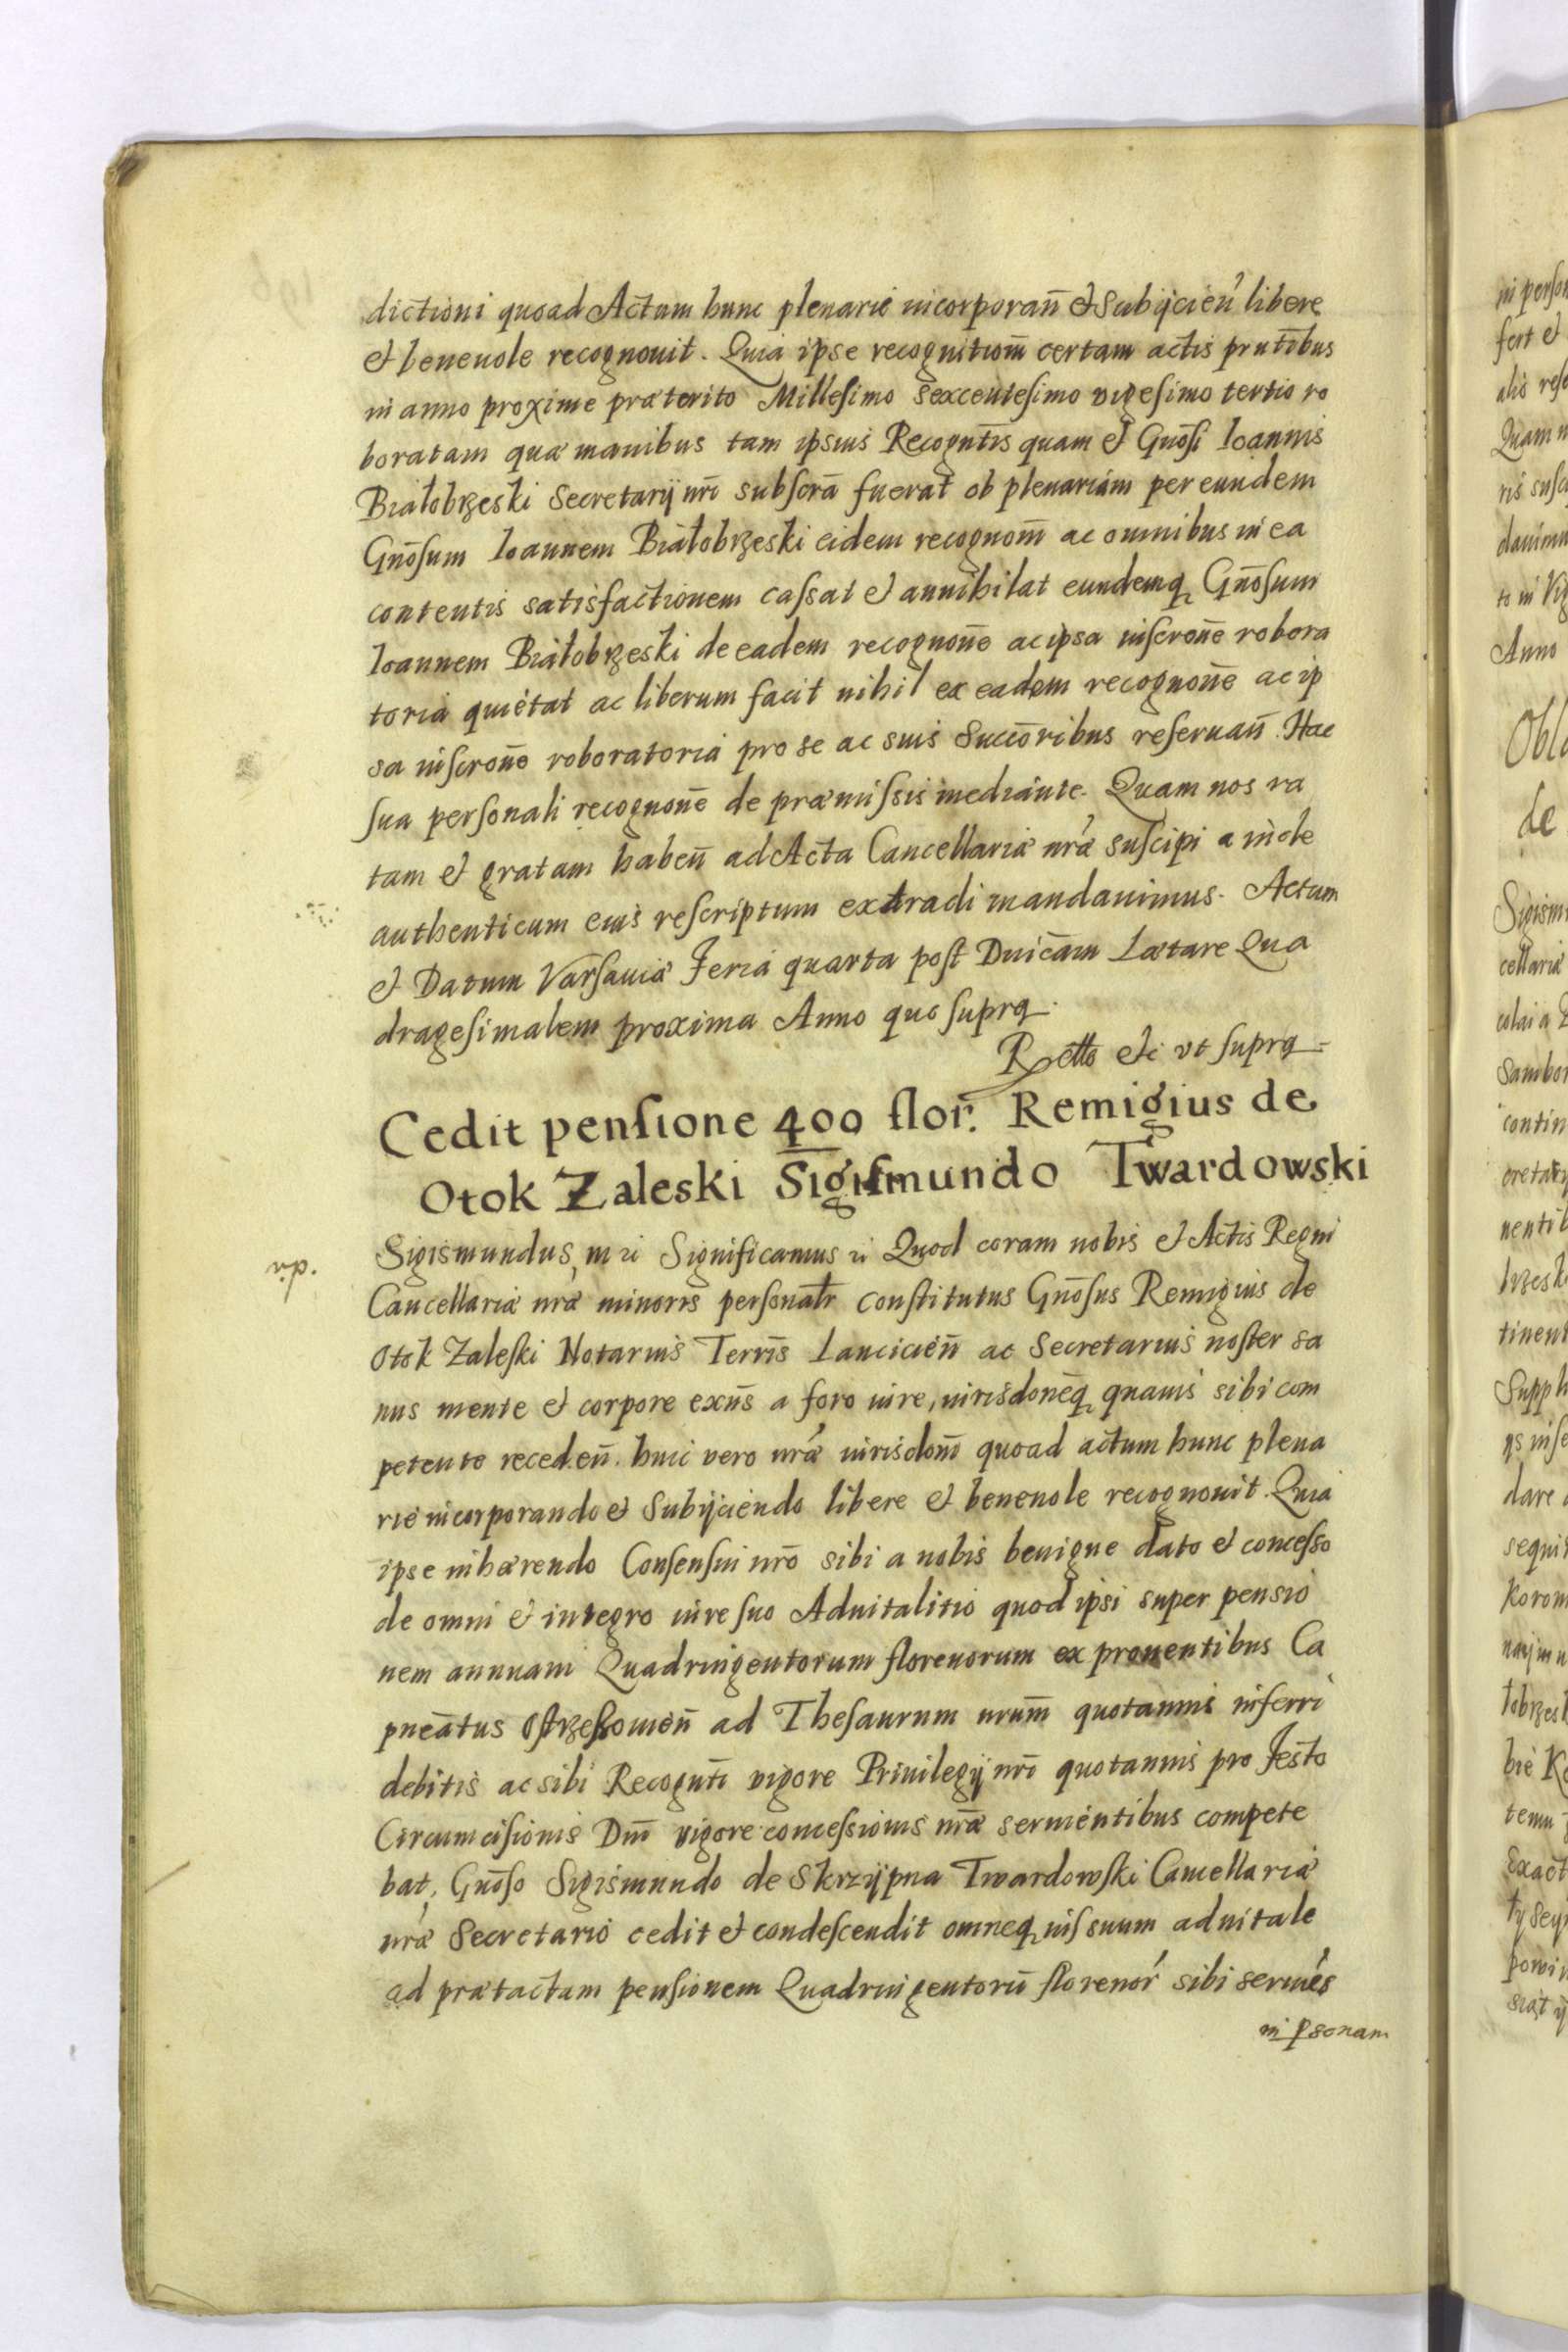 dictioni quoad Actum hunc plenarie incorporan̄ et Subijcien̄ libere
et beneuole recognouit. Quia ipse recognitiom̄ certam actis pn̄tibus
in anno proxime præterito Millesimo Sexcentesimo vigesimo tertio ro
boratam quæ manibus tam ipsius Recogntis quam et Gn̄osi Ioannis
Białobrzeski Secretarij nr̄i subscr̄a fuerat ob plenariam per eundem
Gn̄osum Ioannem Białobrzeski eidem recognom̄ ac omnibus in ea
contentis satisfactionem cassat et annihilat eundemq Gn̄osum
Ioannem Białobrzeski de eadem recognon̄e ac ipsa inscron̄e robora
toria quietat ac liberum facit nihil ex eadem recognon̄e ac ip
sa inscron̄e roboratoria pro se ac suis Succōribus reseruan̄. Hac
sua personali recognon̄e de præmissis mediante. Quam nos ra
tam et gratam haben̄ ad Acta Cancellariæ nr̄æ suscipi ac inde
authenticum eius rescriptum extradi mandauimus. Actum
et Datum Varsauiæ Feria quarta post Dnicam̄ Lætare Qua
dragesimalem proxima Anno quo supra.
Retto etc vt supra
Cedit pensione 400 flor. Remigius de
Otok Zaleski Sigismundo Twardowski
Sigismundus, m ii Significamus ii Quod coram nobis et Actis Regni
Cancellariæ nr̄æ minoris personalr constitutus Gn̄osus Remigius de
Otok Zaleski Notarius Terris̄ Lancicien̄ ac Secretarius noster sa
nus mente et corpore exn̄s a foro iure, iurisdoneq quauis sibi com
petente receden̄. huic vero nr̄æ iurisdom̄ quoad actum hunc plena
rie incorporando et Subijciendo libere et beneuole recognouit. Quia
ipse inhærendo Consensui nr̄o sibi a nobis benigne dato et concesso
de omni et integro iure suo Aduitalitio quod ipsi super pensio
nem annuam Quadringentorum florenorum ex prouentibus Ca
pneātus Ostrzeszouien̄ ad Thesaurum nrum̄ quotannis inferri
debitis ac sibi Recognti vigore Priuilegij nr̄i quotannis pro Festo
Circumcisionis Dnī vigore concessionis nr̄æ seruientibus compete
bat, Gn̄oso Sigismundo de Skrzypna Twardowski Cancellariæ
nr̄æ Secretario cedit et condescendit omneq ius suum aduitale
ad prætactam pensionem Quadringentorū florenor sibi seruies
in psonam